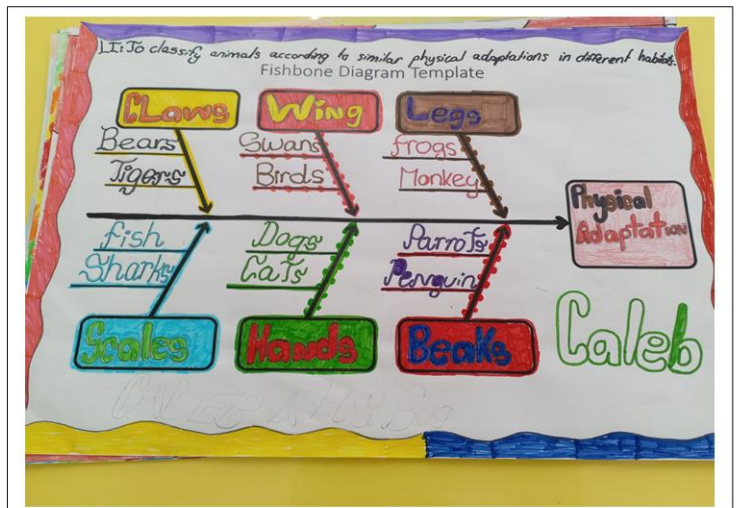 LI: To classify animals according to similar physical adaptations in different habitats.
Fishbone Diagram Template
Claws
Wing
Legs
Bears
Swans
frogs
Tigers
Birds
Monkey
Physical
Adaptation
fish
Dogs
Parrots
Sharks
Cats
Penguin
Scales
Hands
Beaks
Caleb